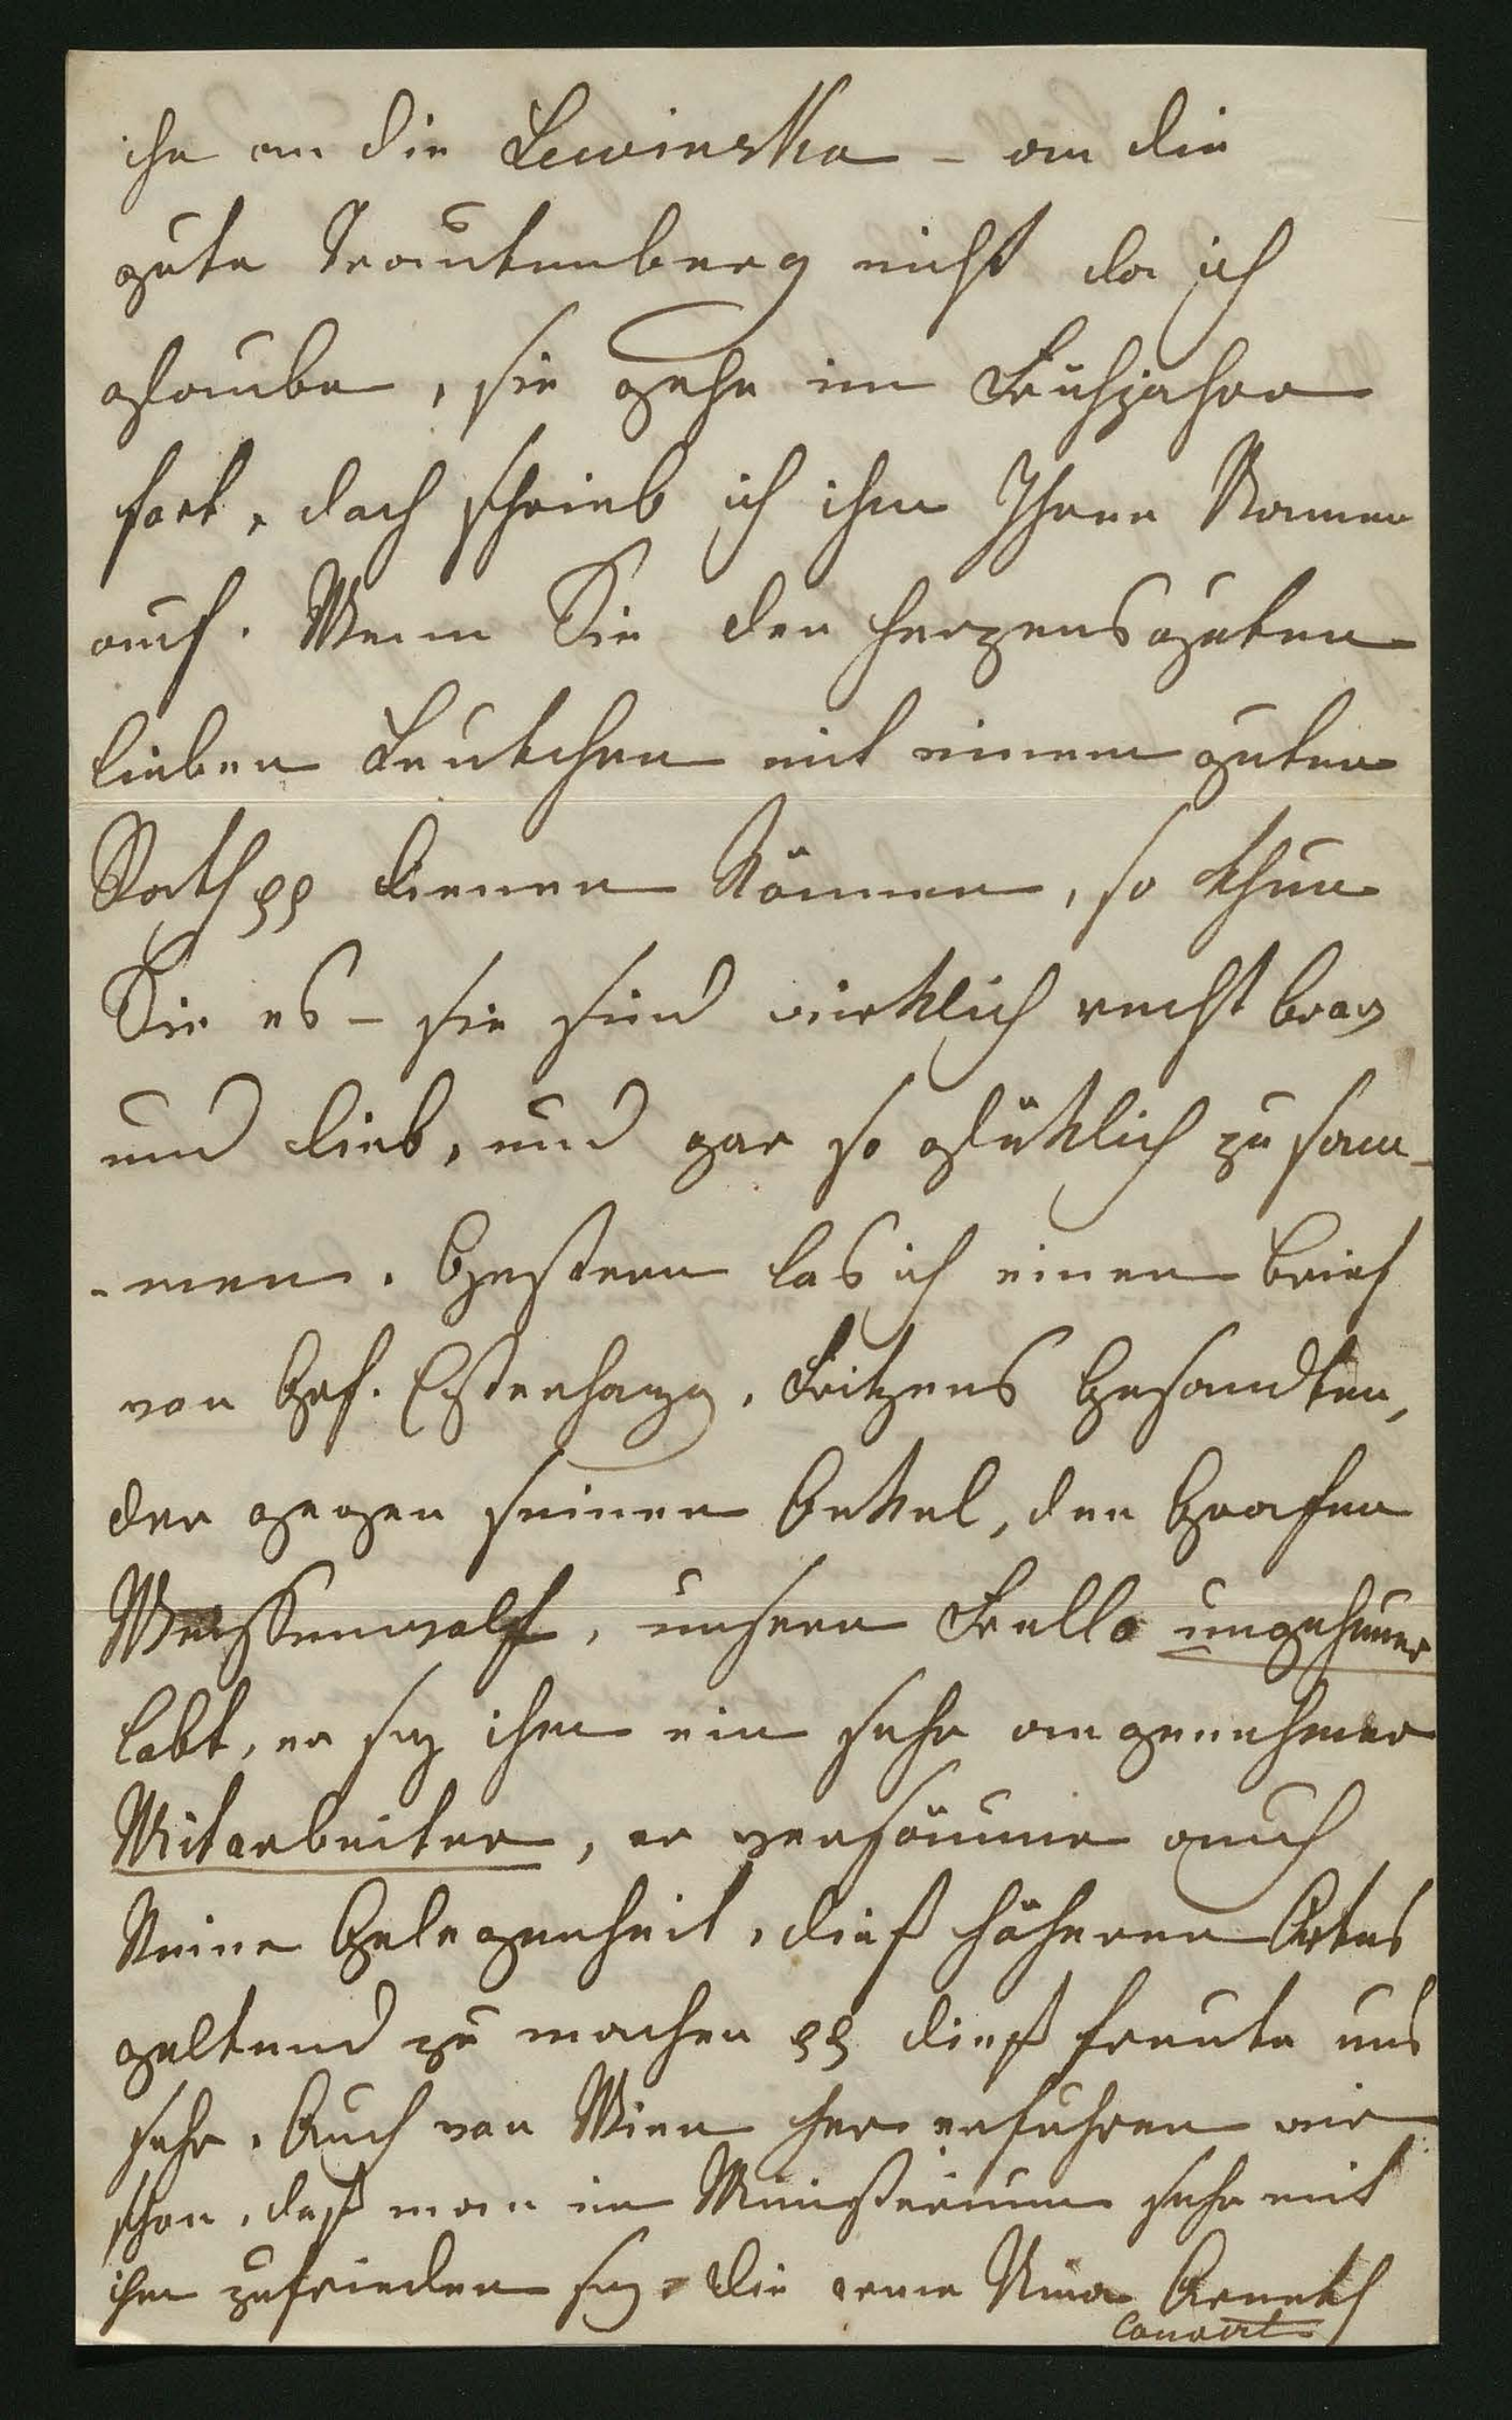 ihn an die Lewinska – an die
gute Trautenberg nicht da ich
glaube, sie gehe im Frühjahre
fort, doch schrieb ich ihm Ihren Namen
auf. Wenn Sie den herzensguten
lieben Leutchen mit einem guten
Rath pp dienen können, so thun
Sie es – sie sind wirklich recht brav
und lieb, und gar so glüklich zusam-
-men. Gestern las ich einen Brief
von Grf. Esterhazy, Fritzens Gesandten,
der gegen seinen Onkel, den Grafen
Weissenwolf, unsern Frello ungeheuer
lobt, er sey ihm ein sehr angenehmer
Mitarbeiter, er versäume auch
keine Gelegenheit, dieß höheren Ortes
geltend zu machen pp dieß freute uns
sehr. Auch von Wien her erfuhren wir
schon, daß man im Ministerium sehr mit
ihm zufrieden sey. Die arme Nina Arneth
Couvert